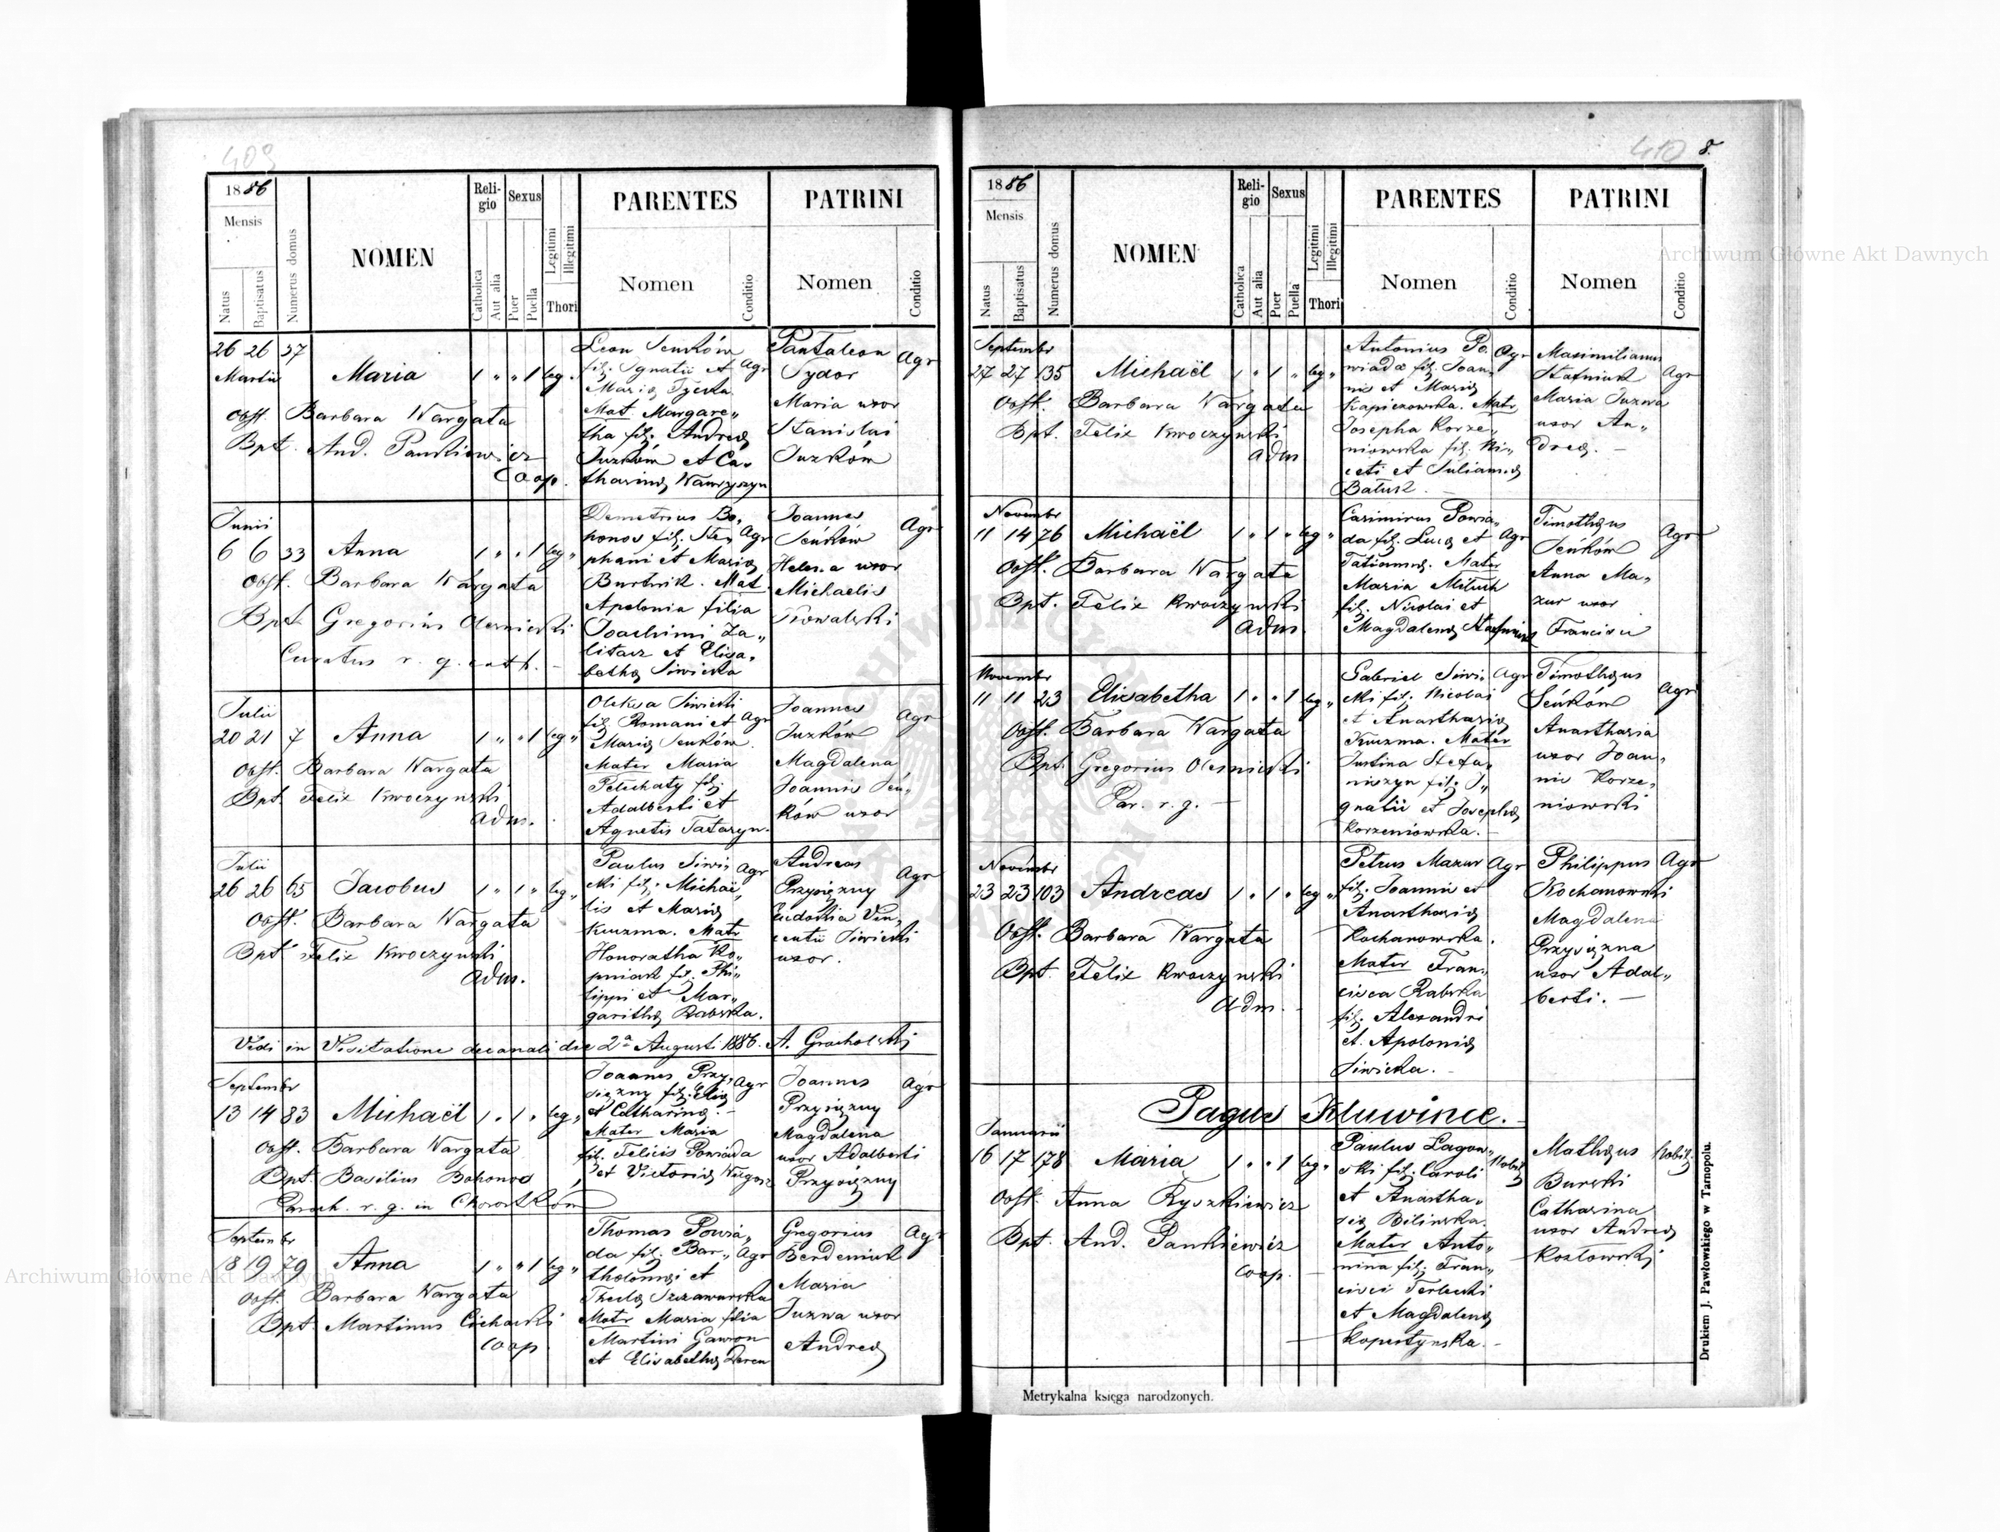 409
1886
Mensis
Natus
Baptisatus
Numerus domus
NOMEN
Religio
Catholica
Aut alia
Sexus
Puer
Puella
Legitimi
Illegitimi
Thori
PARENTES
Nomen
Conditio
PATRINI
Nomen
Conditio
26 26 37
Martii
Maria
1 " " 1 leg.
Obst. Barbara Wargata
Bpt. And. Pankiewicz
Coop.
Leon Senków
fil. Ignatii et Agr
Maria
Mat. Margare„
tha fil. Andreæ
Juzków et Ca„
tharinæ Wawryszyn
Pantaleon Agr
Sydor
Maria uxor
Stanislai
Juzków
Junii
6 6 33 Anna 1 " " 1 leg "
Obst. Barbara Wargata
Bpt. Gregorius Olesnicki
Curatus r. g. cath. –
Demetrius Bo„
honos fil. Ste„ Agr
phani et Mariæ
Mat.
Apolonia filia
Joachimi Za„
litacz et Elisa„
bethæ Siwicka
Joannes Agr
Senków
Helena uxor
Michaelis
Kowalski
Julii
20 21 7 Anna 1 " " 1 leg "
Obst. Barbara Wargata
Bpt. Felix Kwoczynski
Adm.
Oleksa Siwicki
fil. Romani et Agr
Mariæ Senków.
Mater Maria
Pelechaty fil.
Adalberti et
Agnetis Tataryn.
Joannes Agr
Juzków
Magdalena
Joannis Sen„
ków uxor
Julii
26 26 65 Jacobus 1 " 1 " leg "
Obst. Barbara Wargata
Bpt. Felix Kwoczynski
Adm.
Paulus Siwi„ Agr
cki fil. Michaë„
lis et Mariæ
Kuczma. Matr
Honoratha Ko„
pniak f. Phi„
lippi et Mar„
garithæ Rabska.
Andreas Agr
Przysiężny
Eudoxia Vin„
centii Siwicki
uxor.
Vidi in Visitatione decanali die 2a Augusti 1886. A. Grocholski
Septembr
13 14 83 Michaël 1 " 1 " leg "
Obst. Barbara Wargata
Bpt. Basilius Bohonos
Paroch. r. g. in Chorostków
Joannes Przy„ Agr
siężny fil. Eliæ
et Catharinæ. –
Mater Maria
fil. Felicis Powiada
et Victoriæ
Joannes Agr
Przysiężny
Magdalena
uxor Adalberti
Przysiężny
Septembr
18 19 79 Anna 1 " " 1 leg "
Obst. Barbara Wargata
Bpt. Martinus Cichowski
Coop.
Thomas Powia„
da fil. Bar„ Agr
tholomæi et
Matr Maria filia
Martini Gawron
et Elisabethæ Deren
Gregorius Agr
Berdeniuk
Maria
Juzwa uxor
Andreæ
410 8.
1886
Mensis
Natus
Baptisatus
Numerus domus
NOMEN
Religio
Catholica
Aut alia
Sexus
Puer
Puella
Legitimi
Illegitimi
Thori
PARENTES
Nomen
Conditio
PATRINI
Nomen
Conditio
Septembr
27 27 135 Michaël 1 " 1 " leg "
Obst. Barbara Wargata
Bpt. Felix Kwoczynski
Adm
Antonius Po„ Agr
wiada fil. Joan„
nis et Mariæ
Kapiczowska. Matr
Josepha Korze„
niowska fil. Ni„
ceti et Julianæ
Batusz. –
Maximilianus
Stafniuk Agr
Maria Juzwa
uxor An„
dreæ. –
Novembr
11 14 76 Michaël 1 " 1 " leg "
Obst. Barbara Wargata
Bpt. Felix Kwoczynski
Adm.
Casimirus Powia„
da fil. Lucæ et Agr
Tatiannæ. Mater
Maria
fil. Nicolai et
Magdalenæ Stafniuk
Timothæus Agr
Senków
Anna Ma„
zur uxor
Francisci
Novembr
11 11 23 Elisabetha 1 " " 1 leg "
Obst. Barbara Wargata
Bpt. Gregorius Olesnicki
Par. r. g. –
Gabriel Siwi„ Agr
cki fil. Nicolai
et Anasthasiæ
Kuczma. Mater
Justina Stefa„
niszyn fil. I„
gnatii et Josephæ
Korzeniowska. –
Timothæus Agr
Senków
Anasthasia
uxor Joan„
nis Korze„
niowski
Novembr
23 23 103 Andreas 1 " 1 " leg "
Obst. Barbara Wargata
Bpt. Felix Kwoczynski
Adm.
Petrus Mazur Agr
fil. Joannis et
Anasthasiæ
Kochanowska.
Mater Fran„
cisca Rabska
fil. Alexandri
et Apoloniæ
Siwicka. –
Philippus Agr
Kochanowski
Magdalena
Przysiężna
uxor Adal„
berti. –
Pagus Kluwince. –
Januarii
16 17 178 Maria 1 " " 1 leg "
Obst. Anna Ryszkiewicz
Bpt. And. Pankiewicz
Coop. –
Paulus Lagow„
ski fil. Caroli Nobil
et Anastha„
siæ Bilinska.
Mater Anto„
nina fil. Fran„
cisci Terlecki
et Magdalenæ
Kopestynska. –
Mathæus Nobil
Burski
Catharina
uxor Andreæ
Kozlowski
Metrykalna księga narodzonych.
Drukiem J. Pawłowskiego w Tarnopolu.
Archiwum Główne Akt Dawnych
Archiwum Główne Akt Dawnych